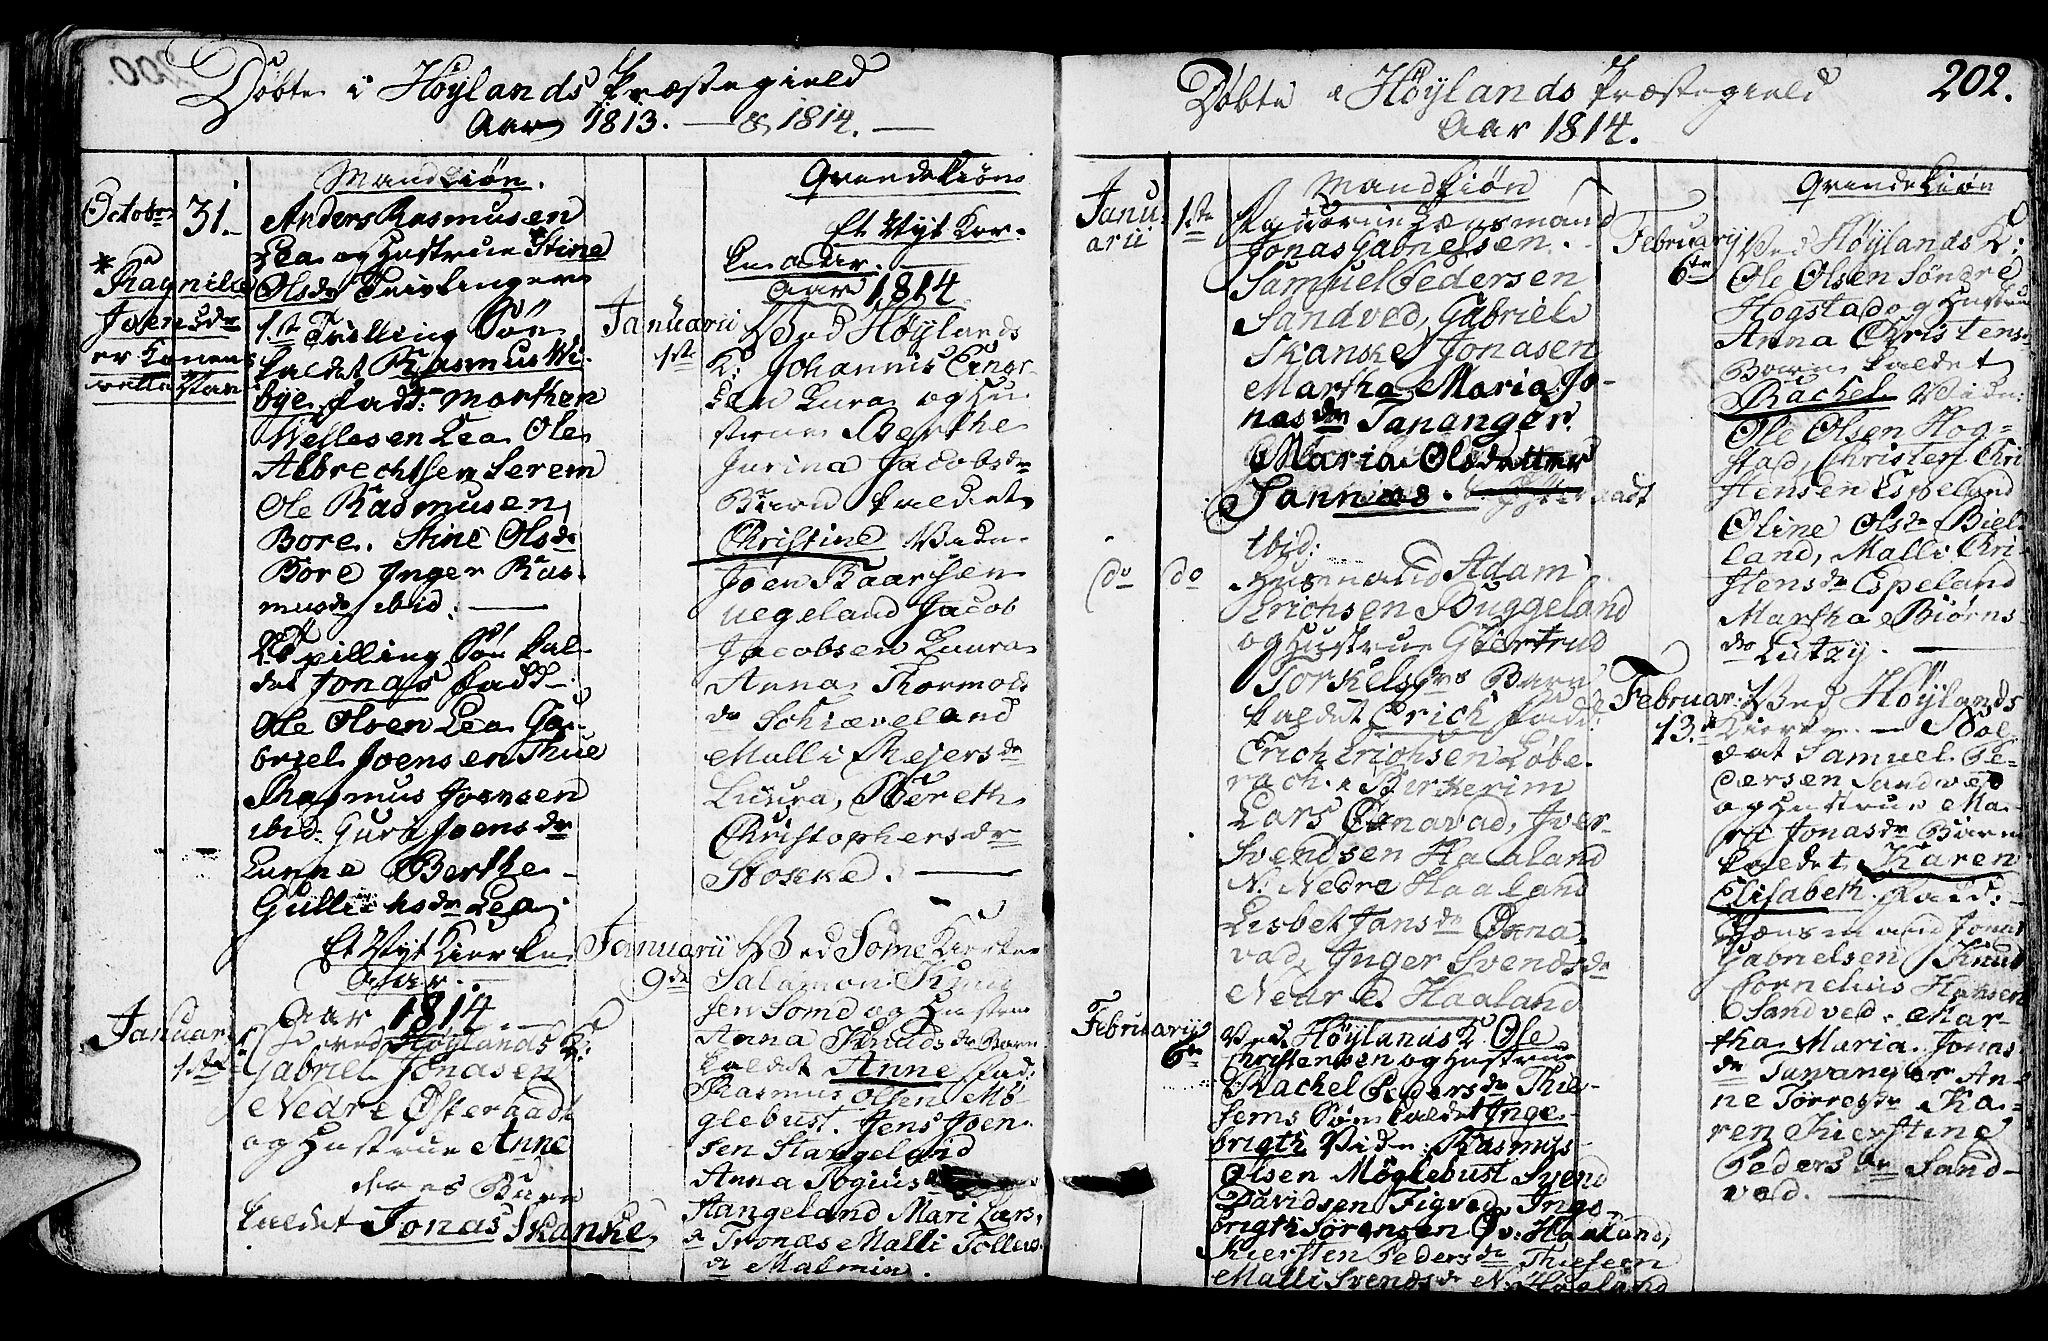 Døbte i Høylands Præstegield
Aar 1813. — & 1814. —
Mandkiøn.
Octobr 31.
Anders Rasmusen
Lea og Hustrue *Stine
Olsdr Tvillinger
1ste Tvilling Søn
kaldet Rasmus Wi-
bye, fadd: Morthen
Lea Ole
Albrechtsen Serem
Ole Rasmusen
Bore, Stine Olsdr
Bore Inger Ras-
musdr ibid: —
* Ragnilde
Joensdr
er Konens
rette Navn
Tvilling Søn kal-
det Jonas fadd:
Ole Olsen Lea Ga-
briel Joensen Thue
Rasmus Joensen
ibid: Guri Joensdr
Lunne Berthe
Gullichsdr Lea
Et Nyt Kierke
Aar.
Aar 1814
Januar
1ste
ved Høylands K:
Gabriel Jonasen
Nedre Østeraadt
og Hustrue Anne
deres Barn
kaldet Jonas Skanke
Qvindekiøn
Et Nyt Kier-
ke Aar.
Aar 1814
Januarii
1ste
Ved Høylands
K: Johannis Einer-
sen Lura og Hu-
strue Berthe
Jurina Jacobsdr
Barn kaldet
Christine Vidn
Joen Baarsen
uegeland Jacob
Jacobsen Luura
Anna Thormods
dr Schiæveland
Malli Rejersdr
Luura, Bereth
Christophersdr
Stokke. —
Januarii
9de
Ved Some Kierke
Salamon Knud
sen Somd og Hustru
Anna Knudsdr Barn
kaldet Anne fad:
Rasmus Olsen Mö
glebust. Jens Joen-
sen Stangeland
Anna Togius
Stangeland Mari Lars
dr Tronæs Malli Tolles
dr Malmin.
202.
Døbte i Høylands Præstegield
Aar 1814.
Mandkiøn
Janu-
arii
1ste
Lænsmand
Jonas Gabrielsen.
Samuel Pedersen
Sandved, Gabriel
Skanske Jonasen
Martha Maria Jo-
nasdr Tananger
Maria Olsdatter
Sannæs.
ibid:
do do
Husmand Adam
Erichsen Buggeland
og Hustrue Giertrud
Torkelsdrs Barn
kaldet Erich fadd:
Erich Erichsen Løbe-
rach i Berkerim
Lars Ornavad, Iver
Svendsen Haaland
N. Nedre Haaland
Lisbet Jansdr Orna
vad, Inger Svendsdr
Nedre Haaland
Februarij
6te
Ved Høylands K. Ole
Christensen og Hustrue
Rachel Pedersdr Thie-
sems Søn kaldet Inge-
brigth Vidn: Rasmus
Olsen Möglebust Svend
Davidsen Figved Inge-
brigth Sørensen Øv: Haaland,
Kiersten Pedersdr Thiesem
Malli Svendsdr N. Haaland
Qvindekiøn
Februarij
6te
Ved Høylands K:
Ole Olsen Søndre
Hogstad og Hustrue
Anna Christens-
Barn kaldet
Rachel Vidn:
Ole Olsen Hog-
stad, Christen Chri
stensen Espeland
Oline Olsdr Biel-
land, Malli Chri-
stensdr Espeland
Martha Biørns
dr Lutzy. —
Februar:
13.de
Ved Høylands
Kierke — Sol-
dat Samuel Pe-
dersen Sandved
og Hustrue Ma-
ri Jonasdr Barn
kaldet Karen
Elisabeth. Fadd:
Lænsmand Jonas
Gabrielsen Knud
Cornelius Hansen
Sandved, Mar-
tha Maria Jonas
dr Tananger An-
ne Torresdr Ka-
ren Kierstine
Pedersdr Sand-
ved. —